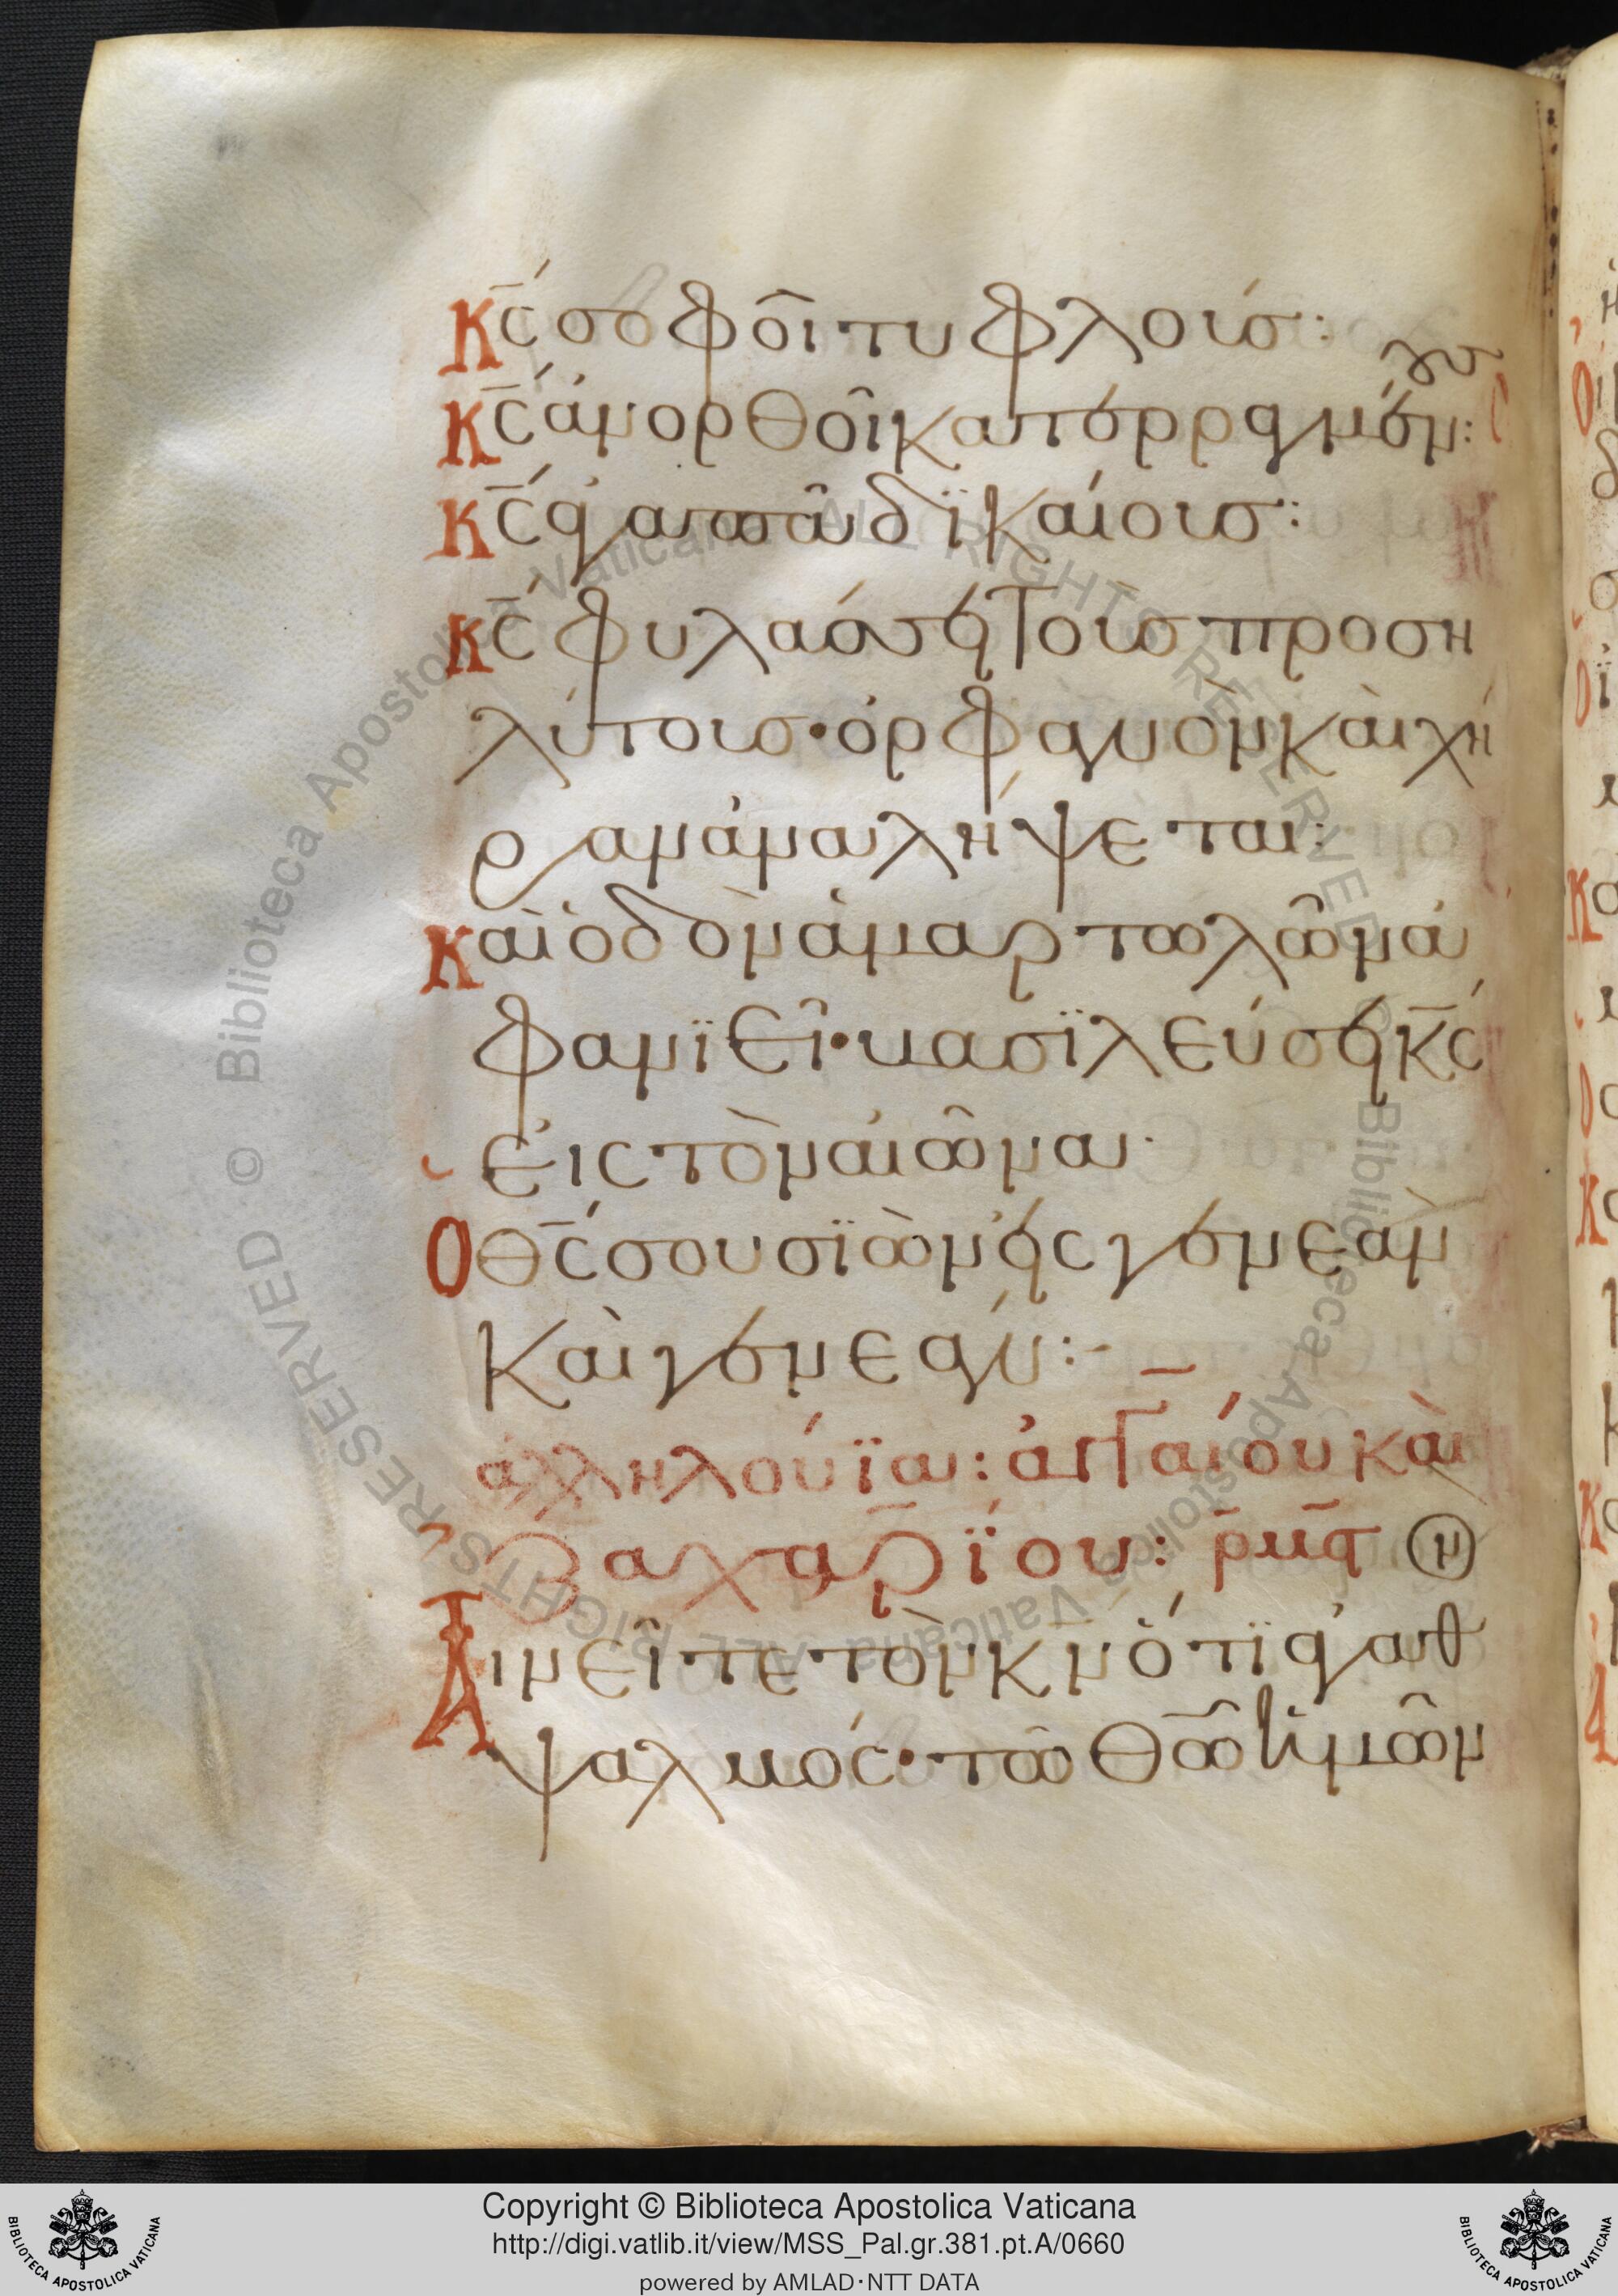 Κ̅ς́ σοφοῖ τυφλούς:
Κ̅ς́ ἀνορθοῖ κατερραγμέν:
Κ̅ς́ ἀγαπᾶ δϊκαίους:
Κ̅ς́ φυλάσσει τοὺς προση
λύτους· ὀρφανὸν καὶ χή
ραν ἀναλήψεται:
Καὶ ὁδὸν ἁμαρτωλῶν ἀ
φανϊεῖ· βασϊλεύσει κ̅ς́
εἰς τὸν αἰῶνα·
Ὁ θ̅ς́ σου σϊὼν εἰς γενεὰν
καὶ γενεάν:-
ἀλληλούϊα: ἀγγαίου καὶ
ζαχαρΐου: ρ̅μ̅ϛ̅
Αἰνεῖτε τὸν κ̅ν̅ ὅτϊ ἀγαθ
ψαλμός· τῶ θ̅ῶ ἡμῶν
Copyright © Biblioteca Apostolica Vaticana
http://digi.vatlib.it/view/MSS_Pal.gr.381.pt.A/0660
powered by AMLAD·NTT DATA
BIBLIOTECA APOSTOLICA VATICANA
BIBLIOTECA APOSTOLICA VATICANA